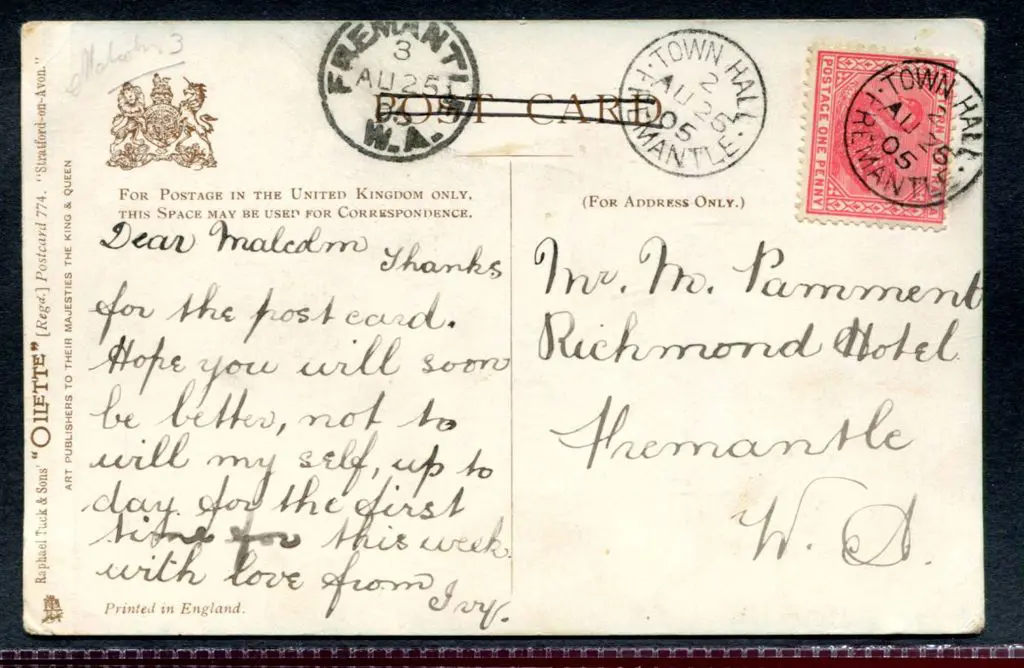 Malcolm 3
FREMANTLE
3
AU 25
05
W.A.
TOWN HALL
2
AU 25
05
FREMANTLE
TOWN HALL
2
AU 25
05
FREMANTLE
POSTAGE ONE PENNY
POST CARD
FOR POSTAGE IN THE UNITED KINGDOM ONLY,
THIS SPACE MAY BE USED FOR CORRESPONDENCE.
(FOR ADDRESS ONLY.)
Dear Malcolm
Thanks
for the post card.
Hope you will soon
be better, not to
will my self, up to
day for the first
time for this week
with love from
Ivy.
Mr. M. Pamment
Richmond Hotel
Fremantle
W. A.
Printed in England.
Raphael Tuck & Sons' "OILETTE" [Regd.] Postcard 774. "Stratford-on-Avon."
ART PUBLISHERS TO THEIR MAJESTIES THE KING & QUEEN